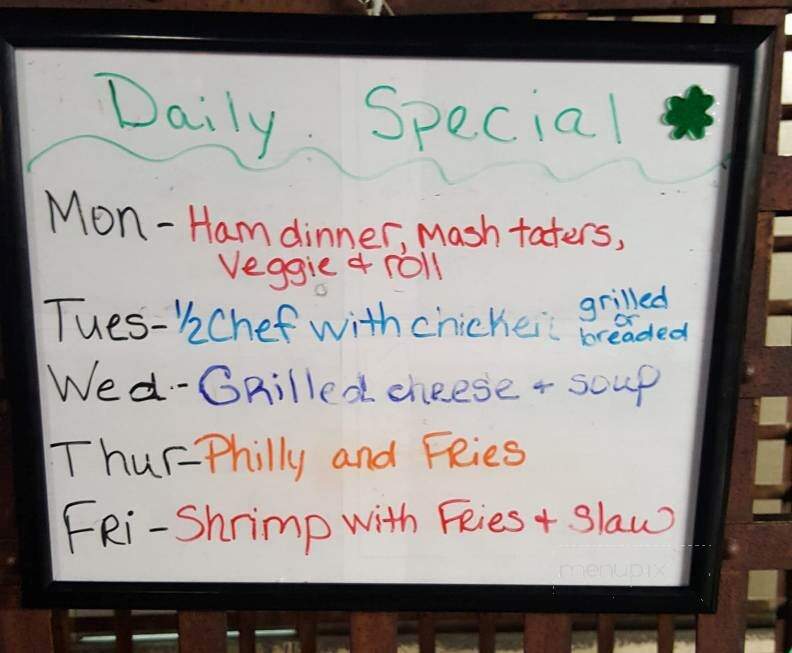 Daily Special
Mon - Ham dinner, Mash taters,
Veggie & roll
Tues - 1/2 Chef with chicken grilled
or
breaded
Wed - Grilled cheese + soup
Thur - Philly and Fries
Fri - Shrimp with Fries + Slaw
menupix